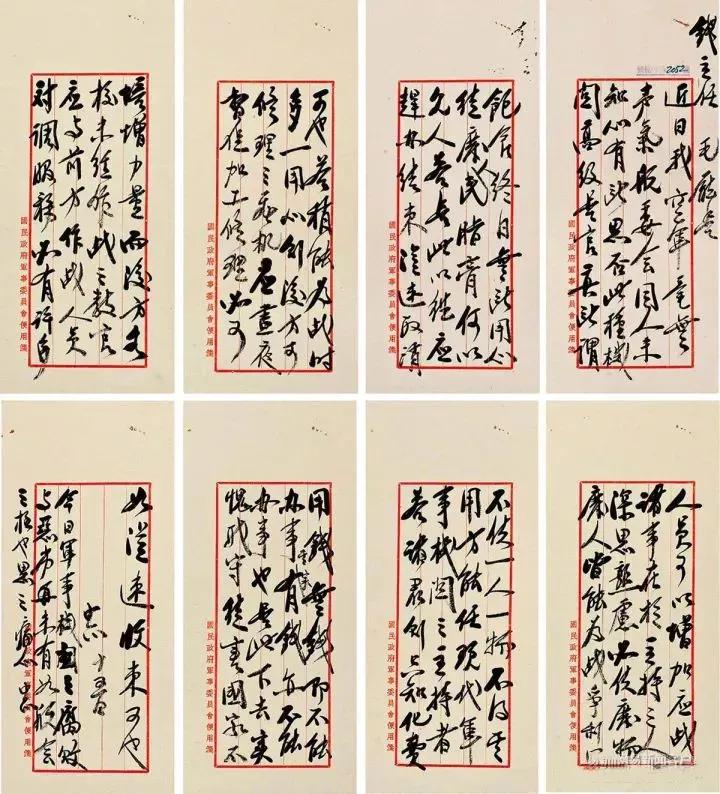 錢主任 毛廳長
2052
近日我空軍竟無
聲氣航委會同人未
知心有所思否此種機
關高級長官真所謂
國民政府軍事委員會便用箋
飽食終日無所用心
徒糜民脂膏何以
人若長此以往應
趕結束從速取消
國民政府軍事委員會便用箋
可也若稍能為此時
多一用心則後方可
修理之飛機應晝夜
督促加工修理必可
國民政府軍事委員會便用箋
培增力量而後方各
校未經作戰之教官
應與前方作戰人員
對調服務必有許多
國民政府軍事委員會便用箋
人員可以增加應戰
諸事在於主持之
深思熟慮必使廢物
廢人皆能為戰爭利
國民政府軍事委員會便用箋
不使一人一物不得其
用方能任現代軍
事機關之主持者
若諸君則只知化費
國民政府軍事委員會便用箋
用錢無錢即不能
辦事其實有錢亦不能
辦事也長此下去實
愧職守徒害國家不
國民政府軍事委員會便用箋
如從速收束可也
中正 十五日
今日軍事機關之腐敗
與惡劣再未有如航會
之極也思之痛心 中正
國民政府軍事委員會便用箋